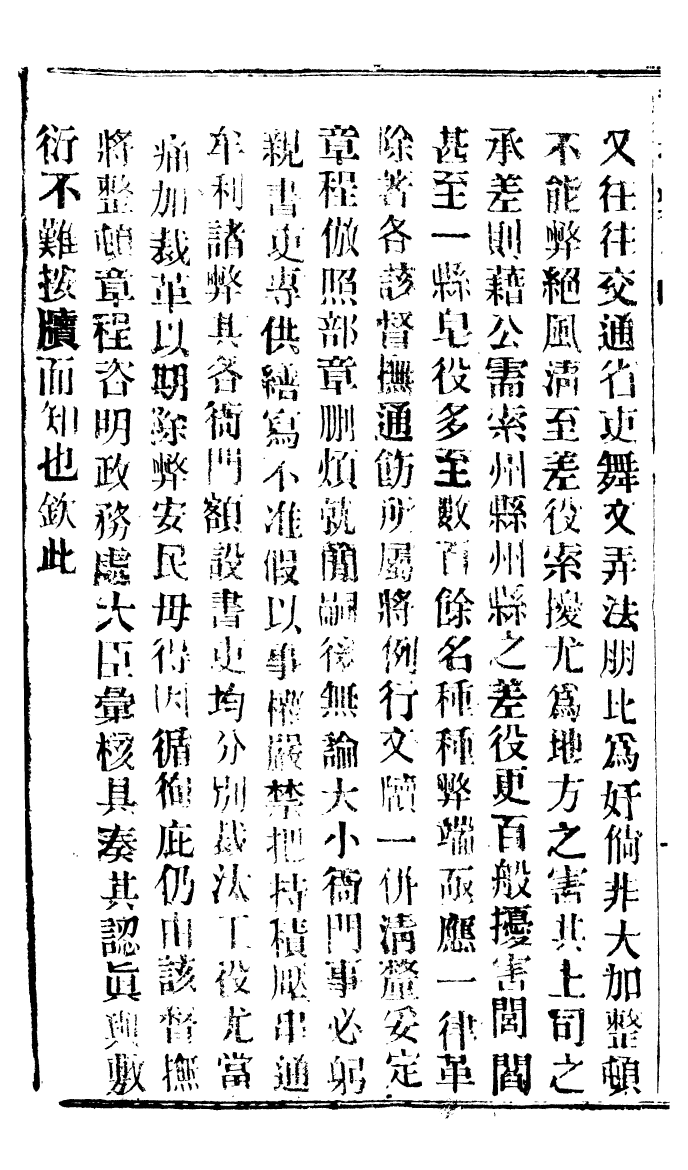 又往往交通省吏舞文弄法朋比爲奸倘非大加整頓
不能弊絕風淸至差役索擾尤爲地方之害其上司之
承差則藉公需索州縣州縣之差役更百般擾害閭閻
甚至一縣皂役多至數百餘名種種弊端亟應一律革
除著各該督撫通飭所屬將例行文牘一併淸釐妥定
章程倣照部章删煩就簡嗣後無論大小衙門事必躬
親書吏專供繕寫不准假以事權嚴禁把持積壓串通
牟利諸弊其各衙門額設書吏均分別裁汰工役尤當
痛加裁革以期除弊安民毋得因循徇庇仍由該督撫
將整頓章程咨明政務處大臣彙核具奏其認眞與敷
衍不難按牘而知也欽此